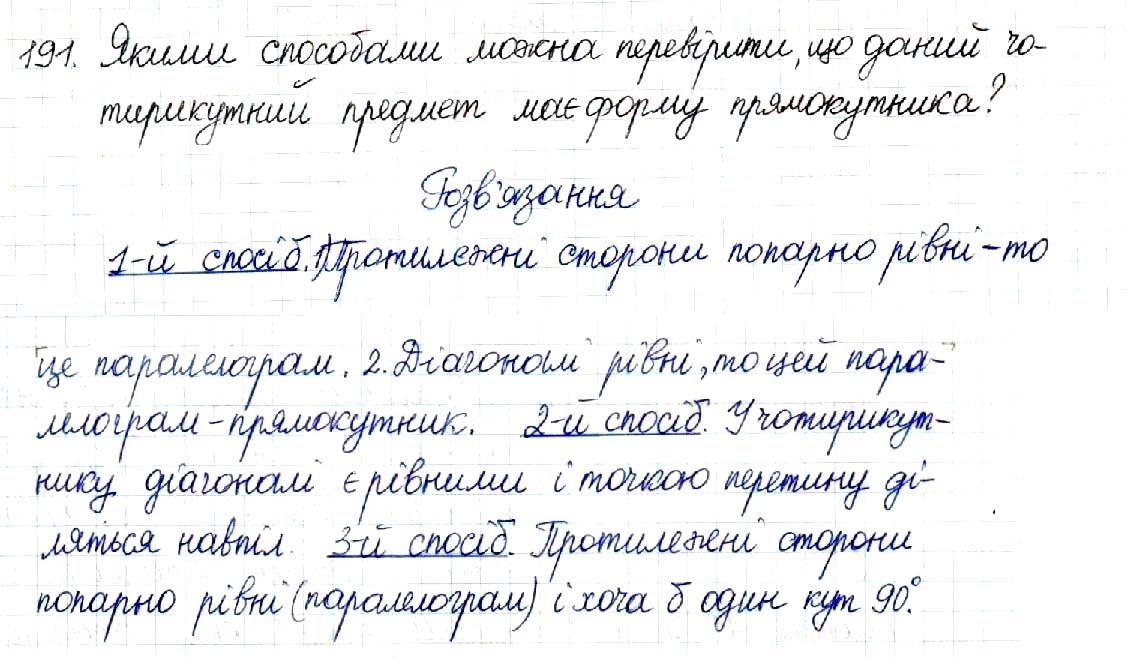 191. Якими способами можна перевірити, що даний чо-
тирикутний предмет має форму прямокутника?
Розв'язання
1-й спосіб. 1) Протилежні сторони попарно рівні – то
це паралелограм. 2. Діагоналі рівні, то цей пара-
лелограм – прямокутник. 2-й спосіб. У чотирикут-
нику діагоналі є рівними і точкою перетину ді-
ляться навпіл. 3-й спосіб. Протилежні сторони
попарно рівні (паралелограм) і хоча б один кут 90°.